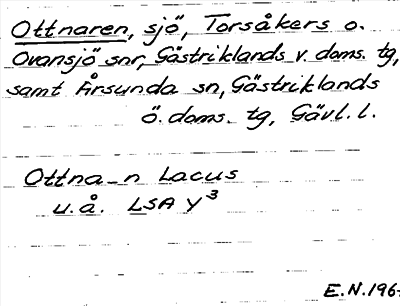 Ottnaren, sjö, Torsåkers o.
Ovansjö snr, Gästriklands v. doms. tg,
samt Årsunda sn, Gästriklands
ö. doms. tg, Gävl. l.
Ottna_n Lacus
u.å. LSA Y³
E.N.196